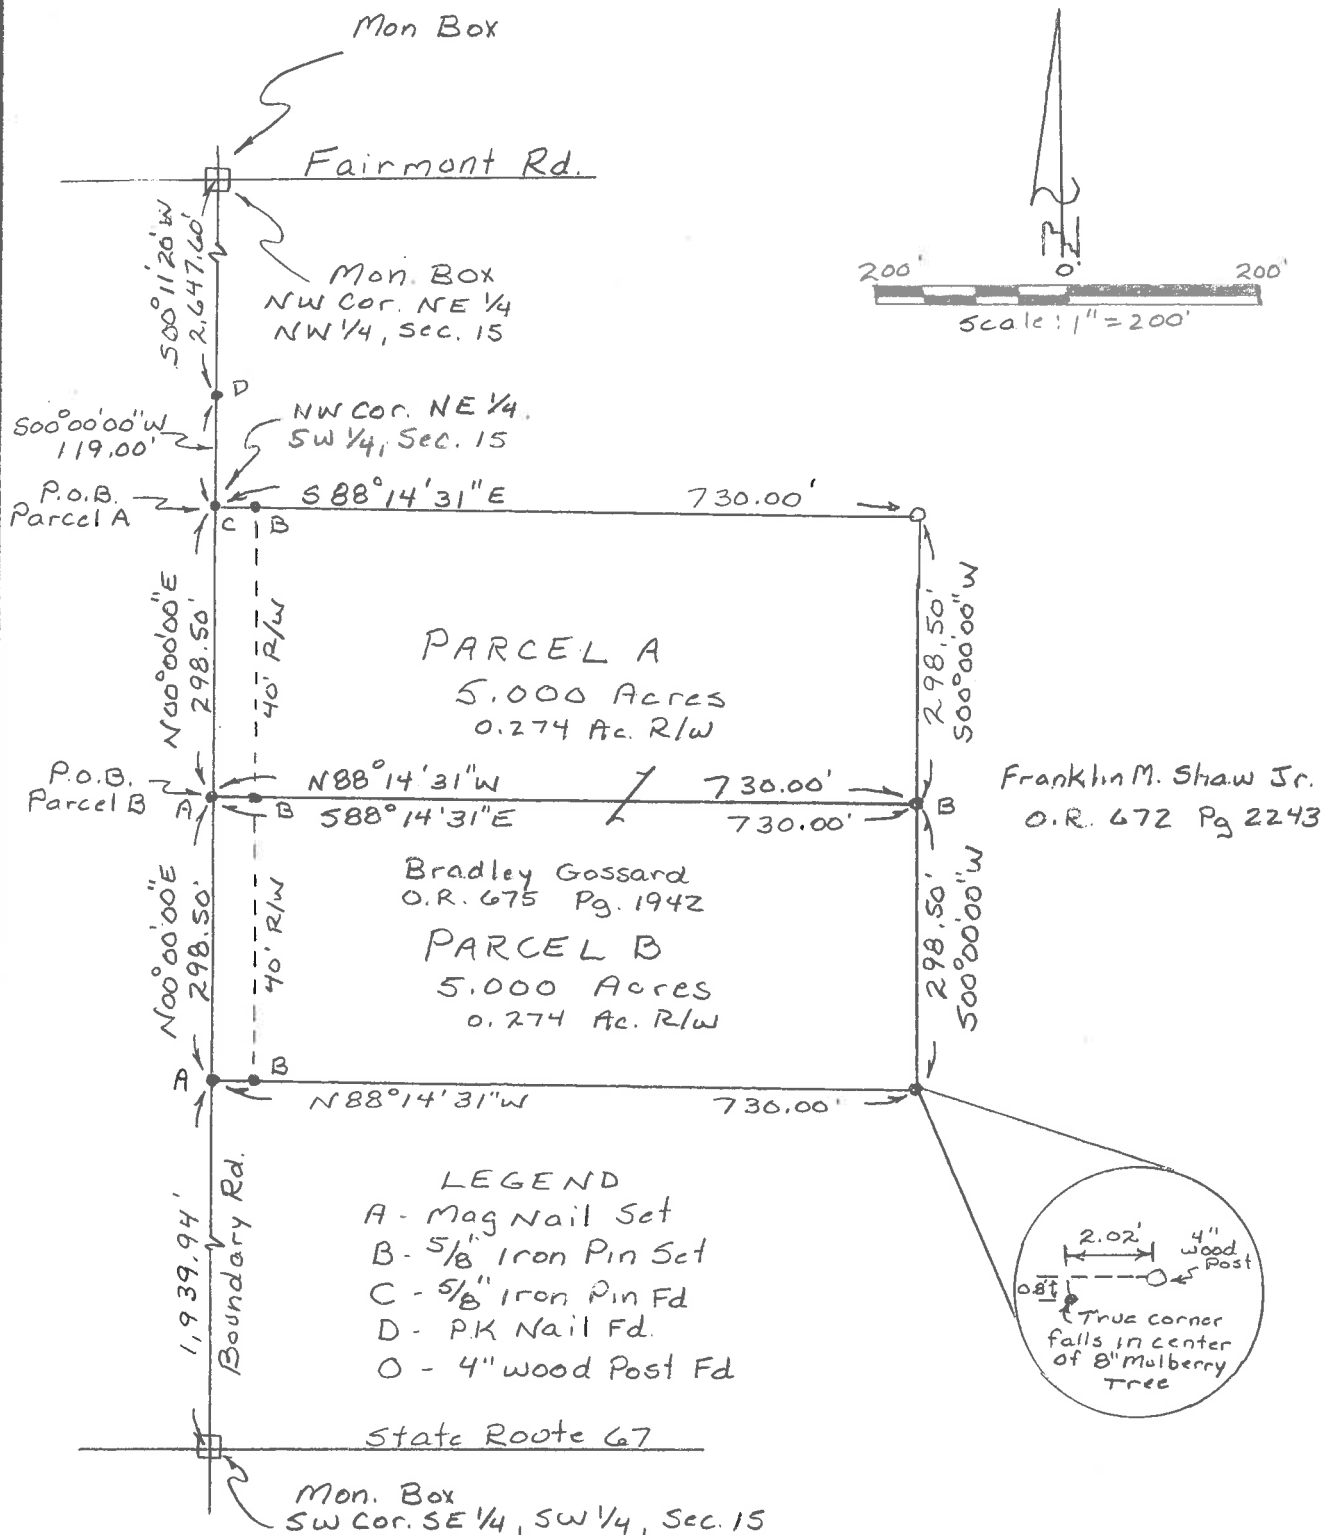 Mon Box
Fairmont Rd.
N
200' 0' 200'
Scale: 1" = 200'
S00°11'20"W
2,647.60'
Mon. Box
NW Cor. NE 1/4
NW 1/4, Sec. 15
D
S00°00'00"W
119.00'
NW Cor. NE 1/4
SW 1/4, Sec. 15
P.O.B.
Parcel A
C
B
S88°14'31"E 730.00'
N00°00'00"E
298.50'
40' R/W
PARCEL A
5.000 Acres
0.274 Ac. R/W
298.50'
S00°00'00"W
P.O.B.
Parcel B
A
B
N88°14'31"W 730.00'
S88°14'31"E 730.00'
B
Franklin M. Shaw Jr.
O.R. 672 Pg 2243
N00°00'00"E
298.50'
40' R/W
Bradley Gossard
O.R. 675 Pg. 1942
PARCEL B
5.000 Acres
0.274 Ac. R/W
298.50'
S00°00'00"W
A
B
N88°14'31"W 730.00'
1,939.94'
Boundary Rd.
LEGEND
A - Mag Nail Set
B - 5/8" Iron Pin Set
C - 5/8" Iron Pin Fd
D - P.K Nail Fd.
O - 4" wood Post Fd
2.02'
4"
wood
Post
0.8'
True corner
falls in center
of 8" Mulberry
Tree
State Route 67
Mon. Box
SW Cor. SE 1/4, SW 1/4, Sec. 15